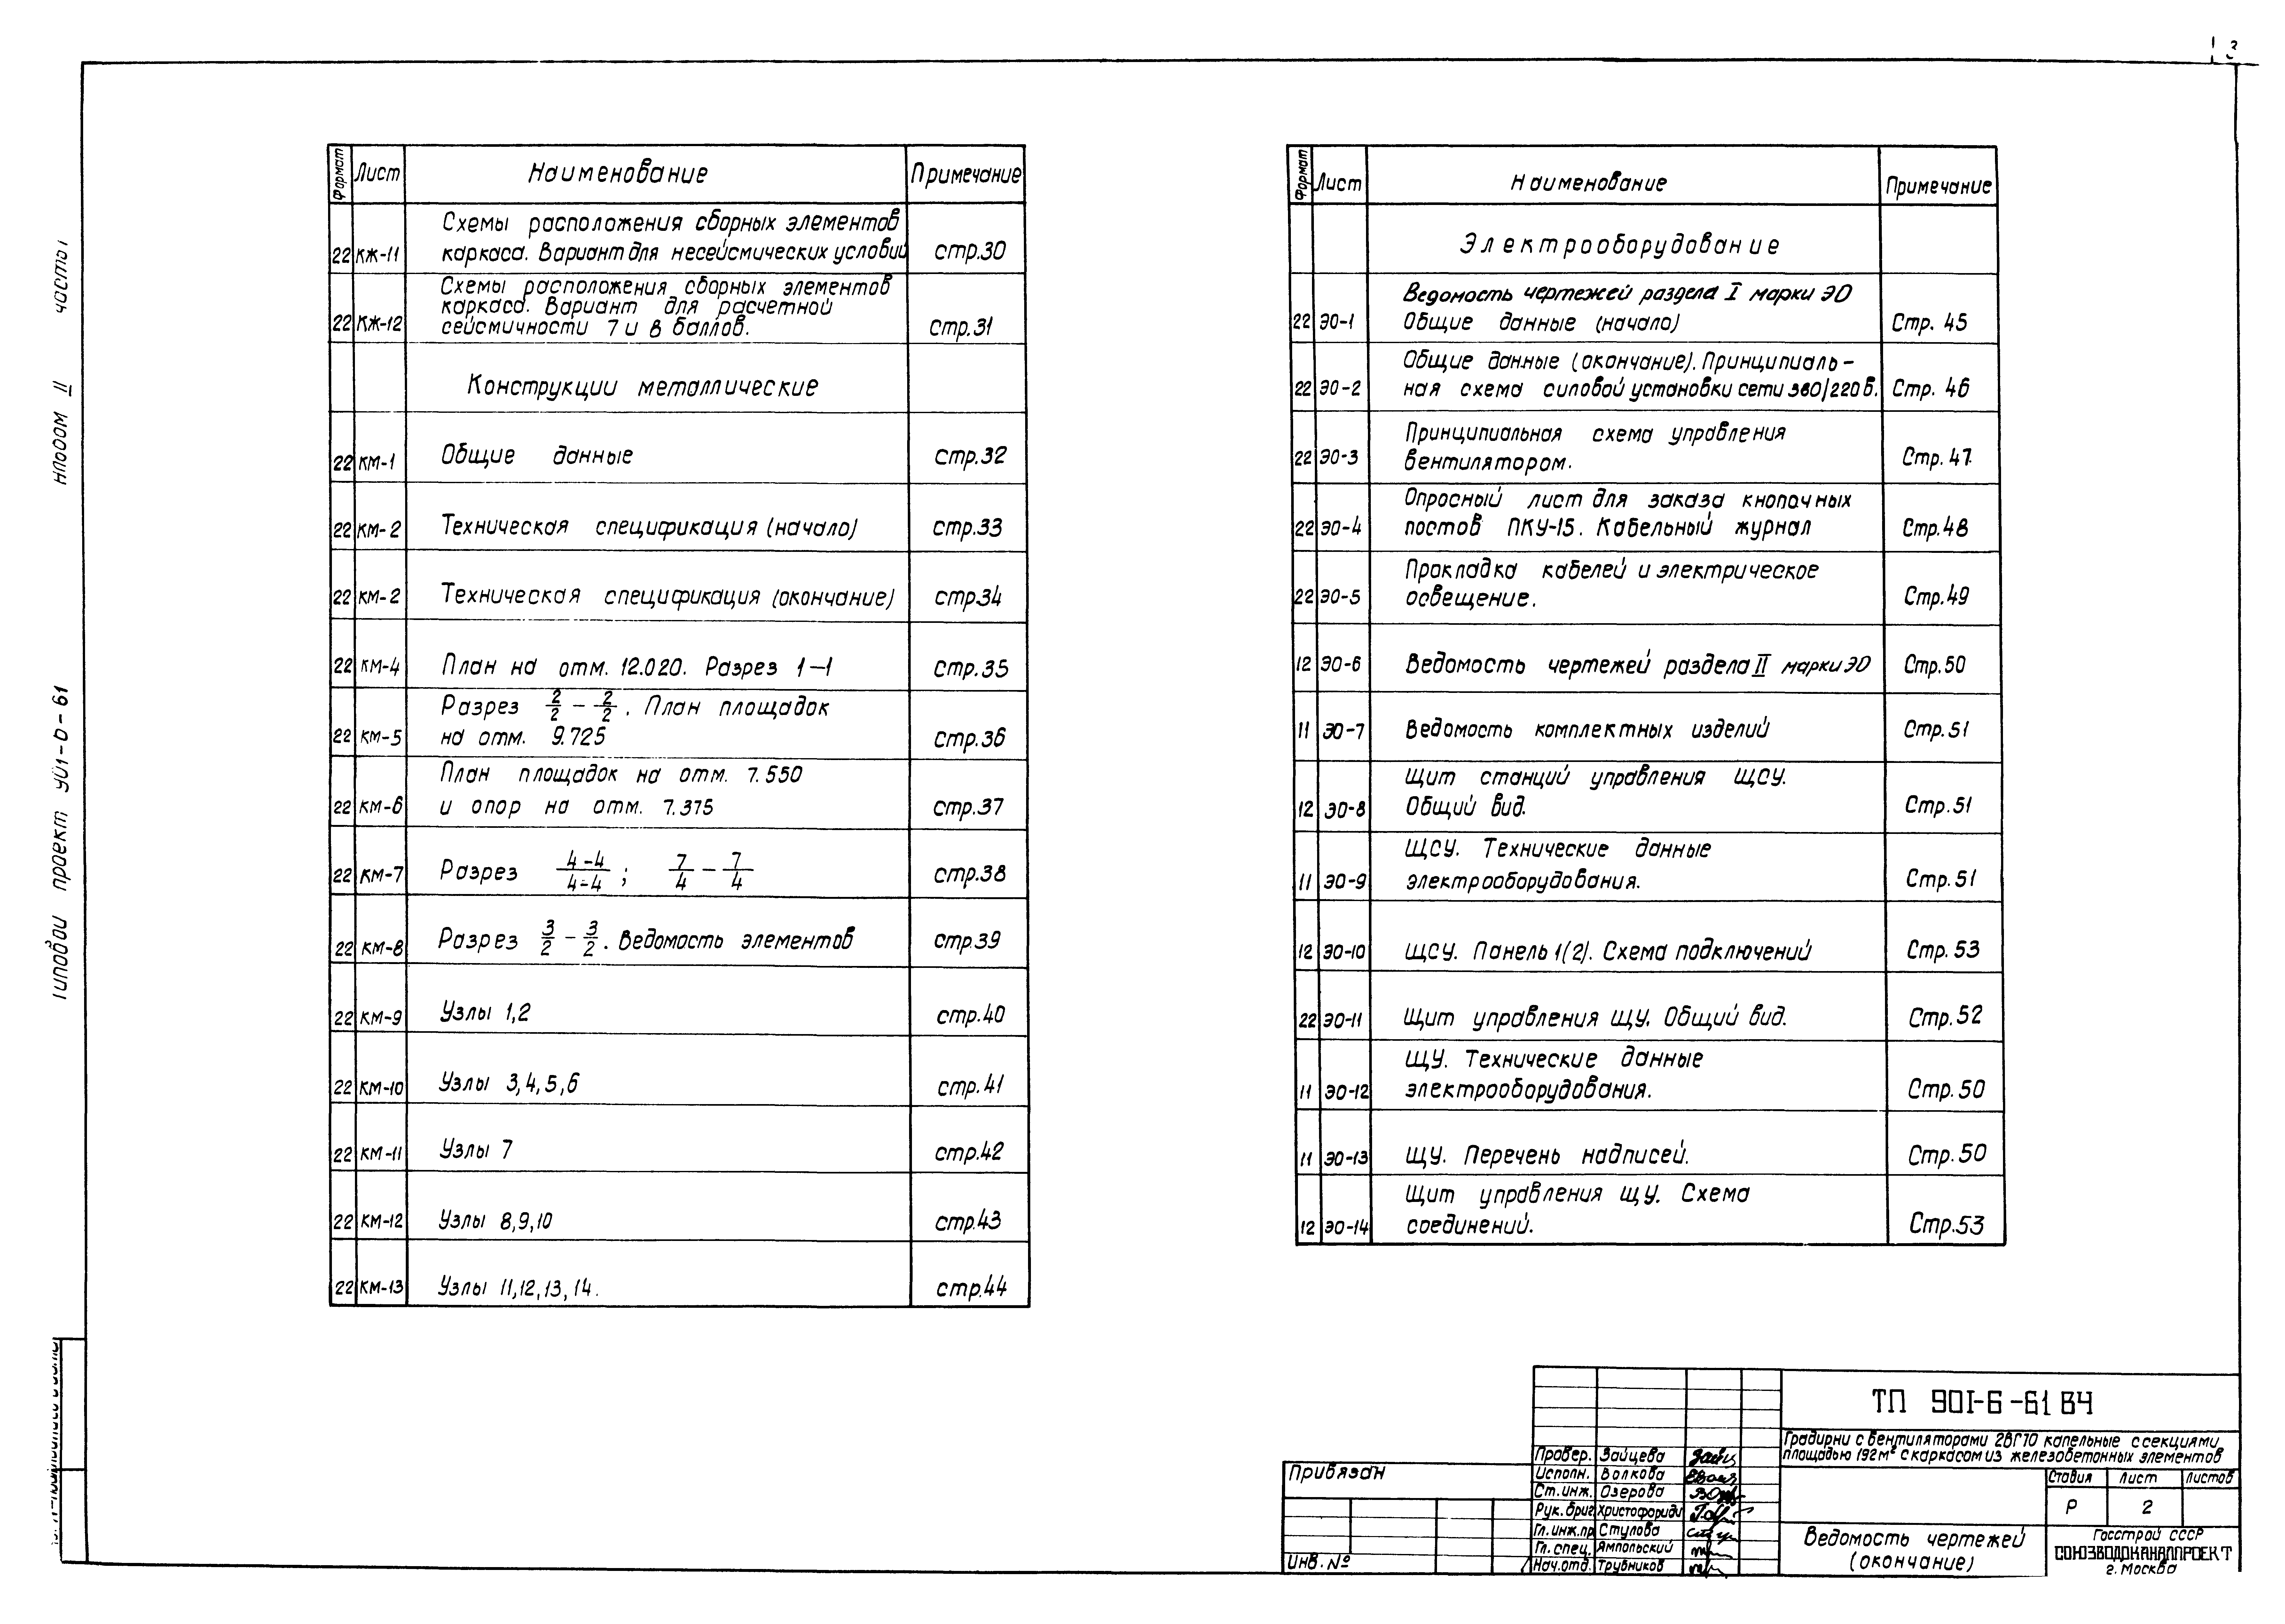 3
Формат Лист Наименование Примечание
Схемы расположения сборных элементов
22 КЖ-11 каркаса. Вариант для несейсмических условий стр.30
Схемы расположения сборных элементов
каркаса. Вариант для расчетной
22 КЖ-12 сейсмичности 7 и 8 баллов. стр.31
Конструкции металлические
22 КМ-1 Общие данные стр.32
22 КМ-2 Техническая спецификация (начало) стр.33
22 КМ-2 Техническая спецификация (окончание) стр.34
22 КМ-4 План на отм. 12.020. Разрез 1-1 стр.35
Разрез 2/2 - 2/2. План площадок
22 КМ-5 на отм. 9.725 стр.36
План площадок на отм. 7.550
22 КМ-6 и опор на отм. 7.375 стр.37
22 КМ-7 Разрез 4-4/4-4; 7/4 - 7/4 стр.38
22 КМ-8 Разрез 3/2 - 3/2. Ведомость элементов стр.39
22 КМ-9 Узлы 1,2 стр.40
22 КМ-10 Узлы 3,4,5,6 стр.41
22 КМ-11 Узлы 7 стр.42
22 КМ-12 Узлы 8,9,10 стр.43
22 КМ-13 Узлы 11,12,13,14. стр.44
Формат Лист Наименование Примечание
Электрооборудование
Ведомость чертежей раздела I марки ЭО
22 ЭО-1 Общие данные (начало) Стр. 45
Общие данные (окончание). Принципиаль-
22 ЭО-2 ная схема силовой установки сети 380/220 в. Стр. 46
Принципиальная схема управления
22 ЭО-3 вентилятором. Стр. 47
Опросный лист для заказа кнопочных
22 ЭО-4 постов ПКУ-15. Кабельный журнал Стр.48
Прокладка кабелей и электрическое
22 ЭО-5 освещение. Стр.49
12 ЭО-6 Ведомость чертежей раздела II марки ЭО Стр.50
11 ЭО-7 Ведомость комплектных изделий Стр.51
Щит станций управления ЩСУ.
12 ЭО-8 Общий вид. Стр.51
ЩСУ. Технические данные
11 ЭО-9 электрооборудования. Стр.51
12 ЭО-10 ЩСУ. Панель 1(2). Схема подключений Стр. 53
22 ЭО-11 Щит управления ЩУ. Общий вид. Стр.52
ЩУ. Технические данные
11 ЭО-12 электрооборудования. Стр.50
11 ЭО-13 ЩУ. Перечень надписей. Стр.50
Щит управления ЩУ. Схема
12 ЭО-14 соединений. Стр.53
Привязан
Инв. №
Провер. Зайцева
Исполн. Волкова
Ст.инж. Озерова
Рук.бриг. Христофориди
Гл.инж.пр Стулова
Гл.спец. Ямпольский
Нач.отд. Трубников
ТП 901-6-61 ВЧ
Градирни с вентиляторами 2ВГ70 капельные с секциями
площадью 192м² с каркасом из железобетонных элементов
Стадия Лист Листов
Р 2
Ведомость чертежей
(окончание)
Госстрой СССР
СОЮЗВОДОКАНАЛПРОЕКТ
г. Москва